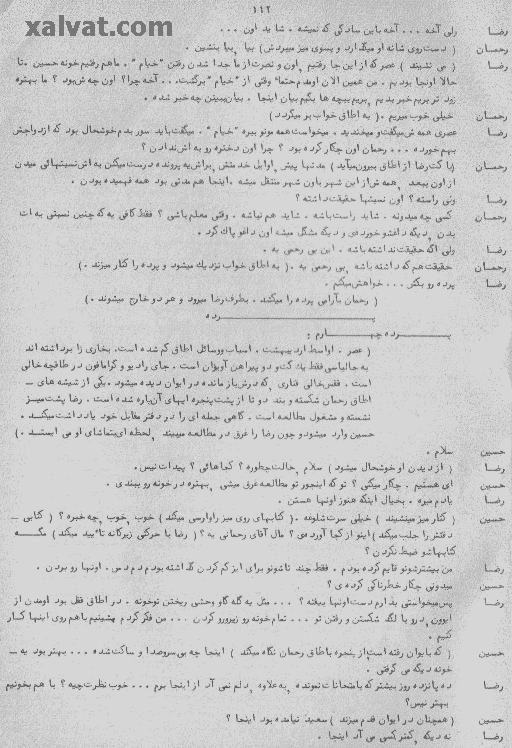 ۱۱۲
xalvat.com
رضا ولی آخه ... آخه باین سادگی که نمیشه . شاید اون ...
رحمان ( دست روی شانه او میگذارد و بسوی میز میبردش ) بیا بیا بنشین .
رضا ( می نشیند ) عصر که از این جا رفتیم اون و نصرت از ما جدا شدن رفتن "خیام" . ما هم رفتیم خونه حسین . تا
حالا اونجا بودیم . من همین الان اومدم حتما وقتی از "خیام" برگشت ... آخه چرا؟ اون چه ش بود؟ ما بهتره
زود تر بریم خبر بدیم بریم ببچه ها بگیم بیان اینجا . بیان ببینن چه خبر شده .
رحمان خیلی خوب میریم . ( به اطاق خواب بر میگردد )
رضا عصری همه ش میگفت و میخندید . میخواست همه مونو ببره "خیام" . میگفت باید سور بدم خوشحال بود که ازدواجش
بهم خورده ... رحمان اون چکار کرده بود؟ چرا اون دختره رو به اش ندادن؟
رحمان ( با کت رضا از اطاق بیرون میآید ) مدتها پیش اوایل خدمتش براش یه پرونده درست میکنن به اش نسبتهائی میدن
از اون ببعد همه ش از این شهر باون شهر منتقل میشه . اینجا هم مدتی بود همه فهمیده بودن .
رضا ولی راسته؟ اون نسبتها حقیقت داشته؟
رحمان کسی چه میدونه . شاید راست باشه . شاید هم نباشه . وقتی معلم باشی؟ فقط کافی یه که چنین نسبتی به ات
بدن دیگه داغشو خوردهی و دیگه مشکل میشه اون داغو پاک کرد .
رضا ولی اگه حقیقت نداشته باشه . این بی رحمی یه .
رحمان حقیقت هم که داشته باشه بی رحمی یه . ( به اطاق خواب نزدیک میشود و پرده را کنار میزند . )
رضا پرده رو بکش ... خواهش میکنم .
( رحمان بآرامی پرده را میکشد . بطرف رضا میرود و هر دو خارج میشوند . )
پـــــــــرده
پـــــــرده چهـــــارم :
( عصر . اواسط اردیبهشت . اسباب و وسائل اطاق کم شده است . بخاری را برداشته اند
به جالباسی فقط یک کت و دو پیراهن آویزان است . جای رادیو و گرامافون در طاقچه خالی
است . قفس خالی قناری که درش باز مانده در ایوان دیده میشود . یکی از شیشه های ــ
اطاق رحمان شکسته و بند دو تا از پشت پنجره ایهای آن پاره شده است . رضا پشت میـز
نشسته و مشغول مطالعه است . گاهی جمله ای را در دفتر مقابل خود یادداشت میکنـد .
حسین وارد میشود و چون رضا را غرق در مطالعه میبیند لحظه ای بتماشای او می ایستـد . )
حسین سلام .
رضا ( از دیدن او خوشحال میشود ) سلام حالت چطوره؟ کجاهائی؟ پیدات نیس .
حسین ای هستیم . چکار میکنی؟ تو که اینجور تو مطالعه غرق میشی بهتره در خونه رو ببندی .
رضا یادم میره . بخیال اینکه هنوز اونها هستن .
حسین ( کنار میز مینشیند ) خیلی سرت شلوغه . ( کتابهای روی میز را وارسی میکند ) خوب خوب چه خبره؟ ( کتابی ــ
دقتش را جلب میکند ) اینو از کجا آوردهی؟ مال آقای رحمانی یه؟ ( رضا با حرکتی زیرکانه تأیید میکند ) مگـــه
کتابهاشو ضبط نکردن؟
رضا من بیشترشونو قایم کرده بودم . فقط چند تاشونو برای ایز گم کردن گذاشته بودم دم دس . اونها رو بردن .
حسین میدونی چکار خطرناکی کردهی؟
رضا پس میخواستی بذارم دست اونها بیفته؟ ... مثل یه گله گاو وحشی ریختن تو خونه . در اطاق قفل بود اومدن از
ایوون در رو با لگد شکستن و رفتن تو ... تمام خونه رو زیر و رو کردن ... من فکر کردم بشینیم با هم روی اینها کـار
کنیم .
حسین ( که بایوان رفته است از پنجره با طاق رحمان نگاه میکند ) اینجا چه بی سر و صدا و ساکت شده ... بهتر بود یه ــ
خونه دیگه می گرفتی .
رضا ده پانزده روز بیشتر که بامتحانات نمونده بعلاوه دلم نمی آد از اینجا برم ... خوب نظرت چیه؟ با هم بخونیم
بهتر نیس؟
حسین ( همچنان در ایوان قدم میزند ) سعید نیامده بود اینجا؟
رضا نه دیگه کمتر کسی می آد اینجا .